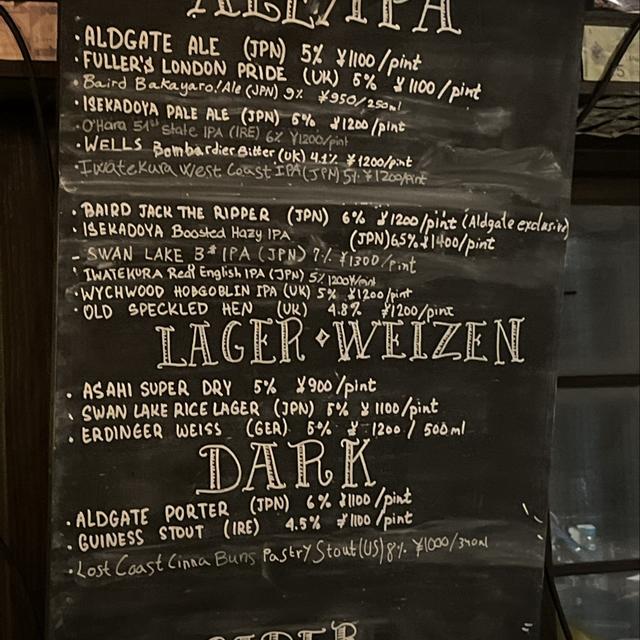 ALE/IPA
· ALDGATE ALE (JPN) 5% ¥1100/pint
· FULLER'S LONDON PRIDE (UK) 5% ¥1100/pint
· Baird Bakayaro! Ale (JPN) 9% ¥950/250ml
· ISEKADOYA PALE ALE (JPN) 5% ¥1200/pint
· O'Hara 51st State IPA (IRE) 6% ¥1200/pint
· WELLS Bombardier Bitter (UK) 4.1% ¥1200/pint
· Iwatekura West Coast IPA (JPN) 5% ¥1200/pint
· BAIRD JACK THE RIPPER (JPN) 6% ¥1200/pint (Aldgate exclusive)
· ISEKADOYA Boosted Hazy IPA (JPN) 6.5% ¥1400/pint
- SWAN LAKE B# IPA (JPN) 7% ¥1300/pint
· IWATEKURA Real English IPA (JPN) 5% 1200¥/pint
· WYCHWOOD HOBGOBLIN IPA (UK) 5% ¥1200/pint
· OLD SPECKLED HEN (UK) 4.8% ¥1200/pint
LAGER · WEIZEN
· ASAHI SUPER DRY 5% ¥900/pint
· SWAN LAKE RICE LAGER (JPN) 5% ¥1100/pint
· ERDINGER WEISS (GER) 5% ¥ 1200 / 500ml
DARK
· ALDGATE PORTER (JPN) 6% ¥1100/pint
· GUINESS STOUT (IRE) 4.5% ¥1100/pint
· Lost Coast Cinna Buns Pastry Stout (US) 8% ¥1000/340ml